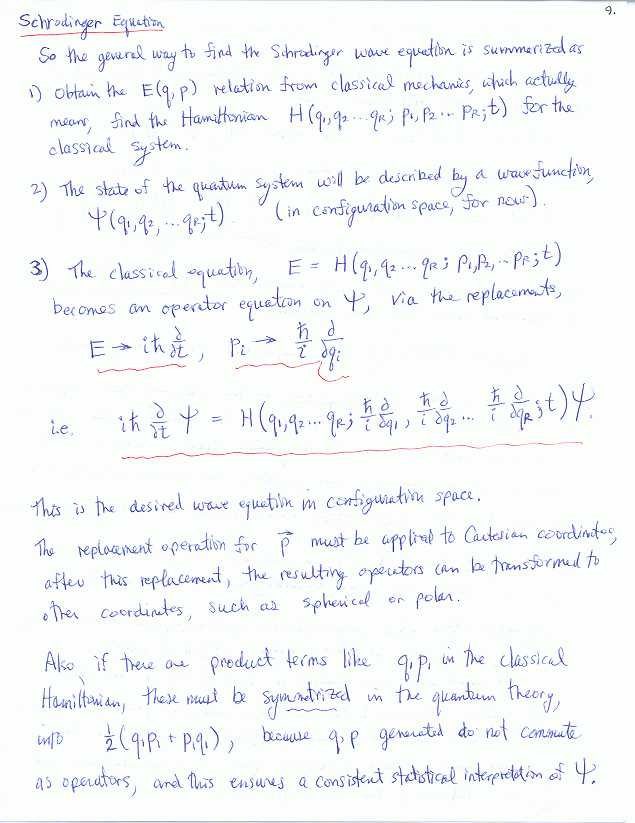 9.
Schrodinger Equation
So the general way to find the Schrodinger wave equation is summarized as
1) Obtain the E(q,p) relation from classical mechanics, which actually
means, find the Hamiltonian H(q₁,q₂...q_R; p₁,p₂... p_R;t) for the
classical system.
2) The state of the quantum system will be described by a wavefunction,
Ψ(q₁,q₂,...q_R;t) (in configuration space, for now).
3) The classical equation, E = H(q₁,q₂...q_R; p₁,p₂,...p_R;t)
becomes an operator equation on Ψ, via the replacements,
E → iħ ∂/∂t, pᵢ → ħ/i ∂/∂qᵢ
i.e. iħ ∂/∂t Ψ = H(q₁,q₂...q_R; ħ/i ∂/∂q₁, ħ/i ∂/∂q₂... ħ/i ∂/∂q_R;t)Ψ.
This is the desired wave equation in configuration space.
The replacement operation for p⃗ must be applied to Cartesian coordinates,
after this replacement, the resulting operators can be transformed to
other coordinates, such as spherical or polar.
Also if there are product terms like q₁p₁ in the classical
Hamiltonian, these must be symmetrized in the quantum theory,
into ½(q₁p₁ + p₁q₁), because q,p generated do not commute
as operators, and this ensures a consistent statistical interpretation of Ψ.